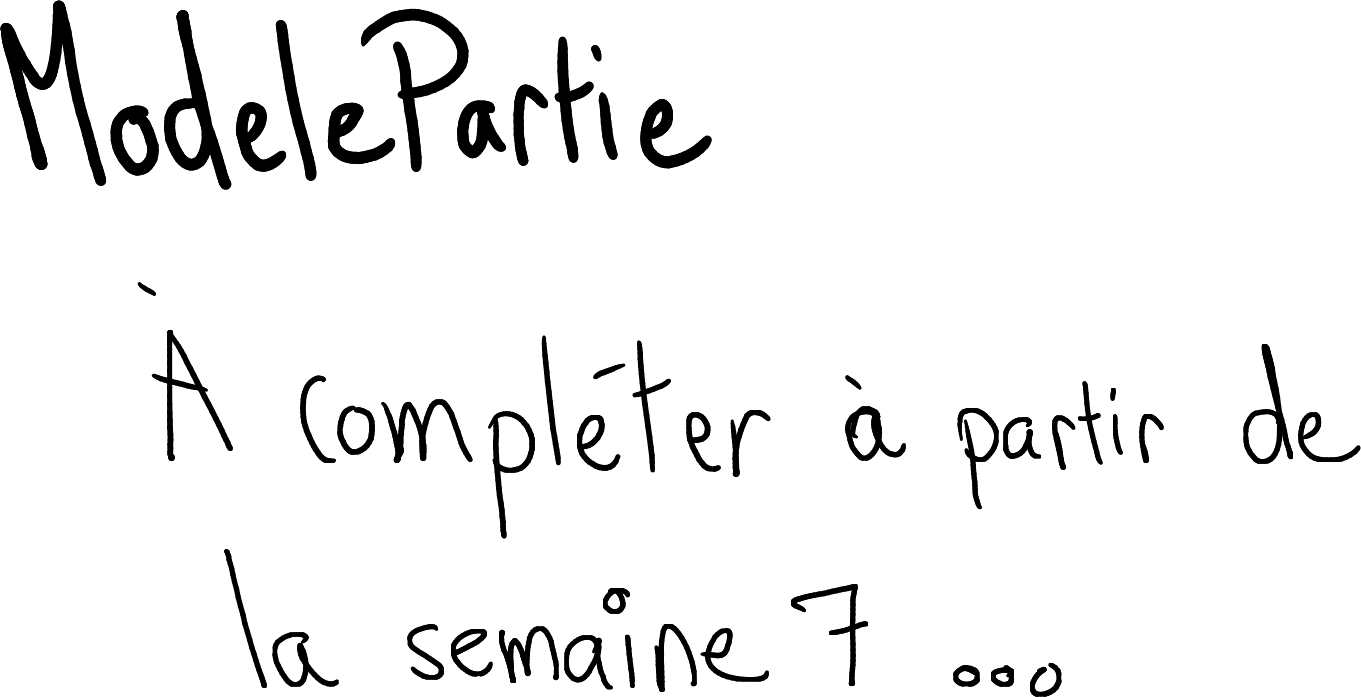 ModelePartie
À compléter à partir de
la semaine 7 ...